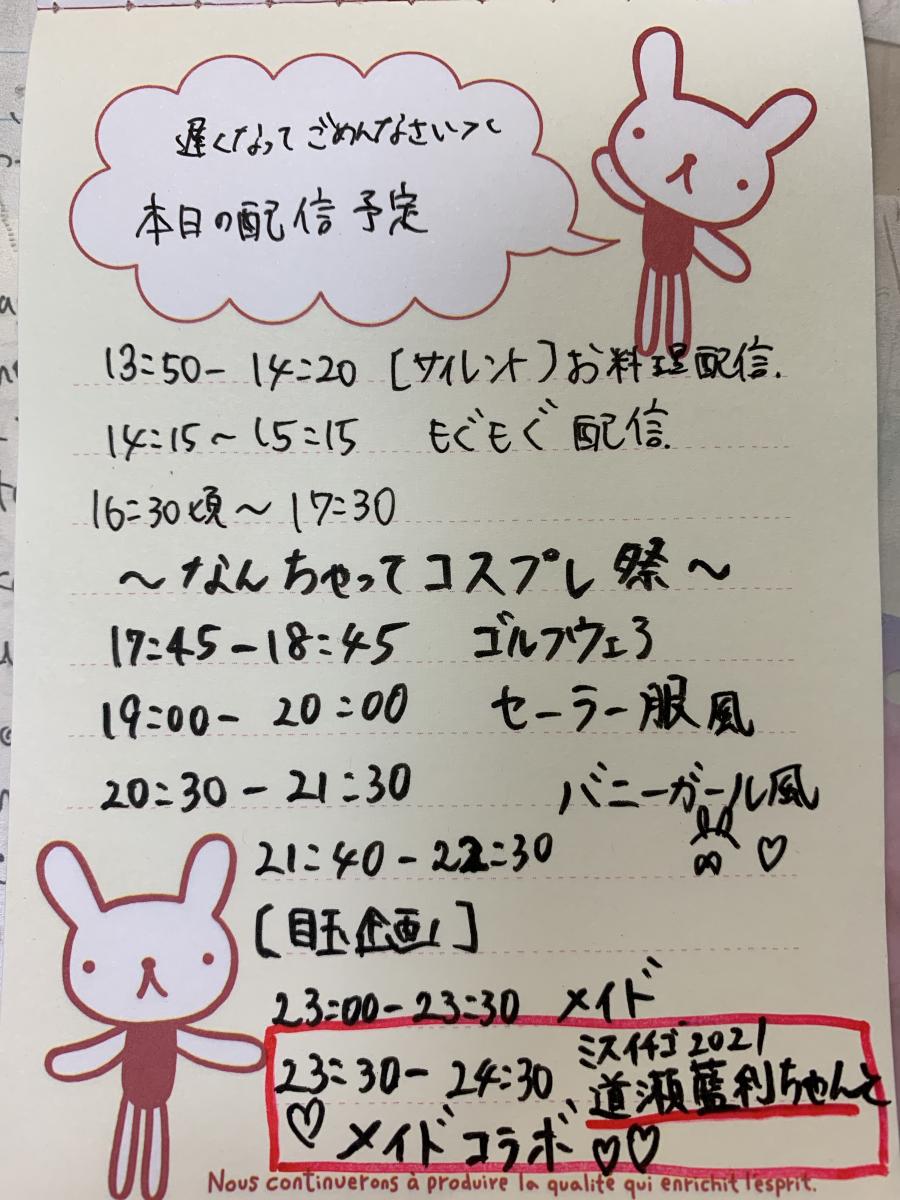 遅くなってごめんなさい><
本日の配信予定
13:50- 14:20 [サイレント]お料理配信.
14:15~15:15 もぐもぐ配信.
16:30頃~17:30
~なんちゃってコスプレ祭~
17:45-18:45 ゴルフウェ
19:00- 20:00 セーラー服風
20:30-21:30 バニーガール風
♡
21:40-22:30
[目玉企画!]
23:00-23:30 メイド
ミスイチゴ2021
23:30- 24:30 道瀬藍利ちゃんと
♡メイドコラボ♡♡
Nous continuerons à produire la qualité qui enrichit l'esprit.